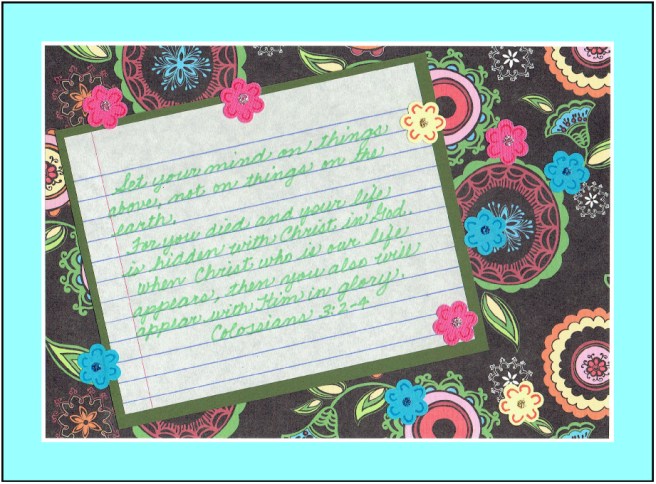 Set your mind on things
above, not on things on the
earth.
For you died and your life
is hidden with Christ in God.
When Christ who is our life
appears, then you also will
appear with Him in glory.
Colossians 3:2-4